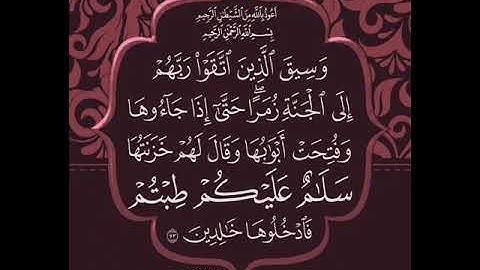 أَعُوذُ بِٱللَّهِ مِنَ ٱلشَّيْطَٰنِ ٱلرَّجِيمِ
بِسْمِ ٱللَّهِ ٱلرَّحْمَٰنِ ٱلرَّحِيمِ
وَسِيقَ ٱلَّذِينَ ٱتَّقَوْا۟ رَبَّهُمْ
إِلَى ٱلْجَنَّةِ زُمَرًا ۖ حَتَّىٰٓ إِذَا جَآءُوهَا
وَفُتِحَتْ أَبْوَٰبُهَا وَقَالَ لَهُمْ خَزَنَتُهَا
سَلَٰمٌ عَلَيْكُمْ طِبْتُمْ
فَٱدْخُلُوهَا خَٰلِدِينَ ٧٣